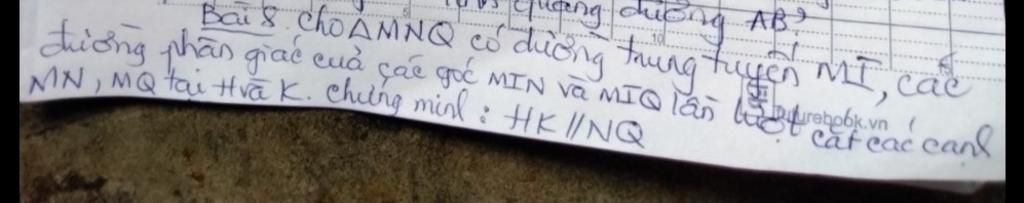 quãng đường AB?
Bài 8. Cho △MNQ có đường trung tuyến MI, các
đường phân giác của các góc MIN và MIQ lần lượt cắt các cạnh
MN, MQ tại H và K. Chứng minh : HK//NQ
urebook.vn